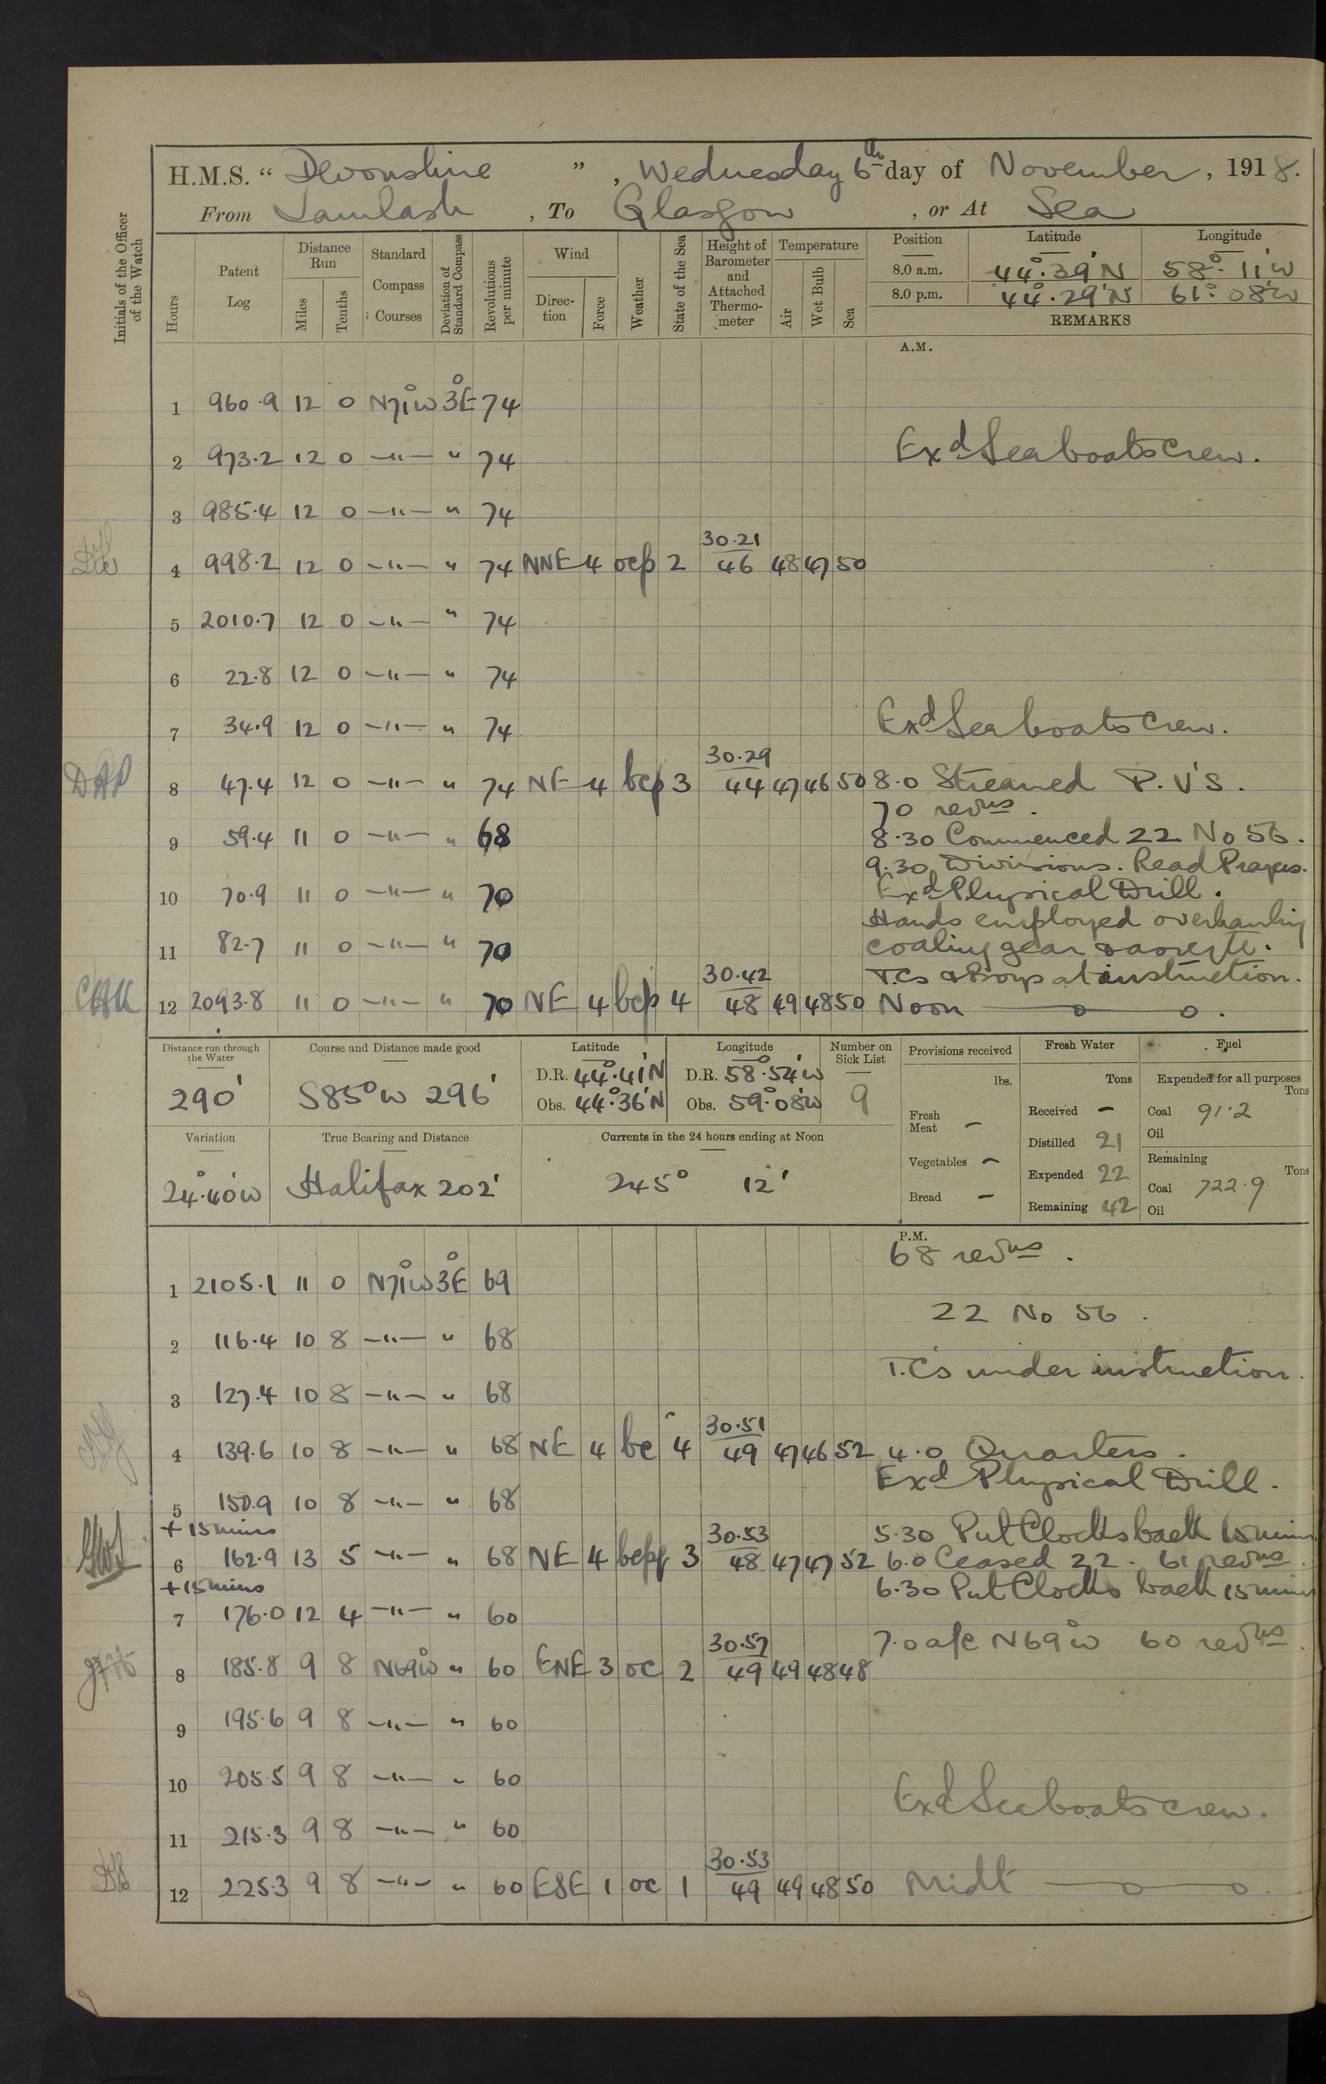 H.M.S. “ Devonshire ” , Wednesday 6th day of November , 1918.
From Lamlash , To Glasgow , or At Sea
Initials of the Officer of the Watch
Hours Patent Log Distance Run Miles Tenths Standard Compass Courses Deviation of Standard Compass Revolutions per minute Wind Direction Force Weather State of the Sea Height of Barometer and Attached Thermometer Temperature Air Wet Bulb Sea
Position Latitude Longitude
8.0 a.m. 44°.39'N 58°. 11'W
8.0 p.m. 44°.29'N 61°. 08'W
REMARKS
A.M.
1 960.9 12 0 N71°W 3°E 74
2 973.2 12 0 —"— " 74 Exd Seaboats crew.
3 985.4 12 0 —"— " 74
4 998.2 12 0 —"— " 74 NNE 4 ocp 2 30.21 46 48 47 50
5 2010.7 12 0 —"— " 74
6 22.8 12 0 —"— " 74
7 34.9 12 0 —"— " 74 Exd Seaboats crew.
DAP 8 47.4 12 0 —"— " 74 NE 4 bcp 3 30.29 44 47 46 50 8.0 Streamed P.V'S.
70 revns.
9 59.4 11 0 —"— " 68 8.30 Commenced 22 No 56.
9.30 Divisions. Read Prayers.
10 70.9 11 0 —"— " 70 Exd Physical Drill.
Hands employed overhauling
11 82.7 11 0 —"— " 70 coaling gear
T.Cs & Boys at instruction.
12 2093.8 11 0 —"— " 70 NE 4 bcp 4 30.42 48 49 48 50 Noon
Distance run through the Water Course and Distance made good Latitude Longitude Number on Sick List Provisions received Fresh Water Fuel
290' S85°W 296' D.R. 44°.41'N D.R. 58°.54'W 9
Obs. 44°.36'N Obs. 59°.08'W
lbs. Tons Expended for all purposes Tons
Fresh Meat — Received — Coal 91.2
Oil
Variation True Bearing and Distance Currents in the 24 hours ending at Noon
24°.40'W Halifax 202' 245° 12'
Vegetables — Distilled 21 Remaining Tons
Bread — Expended 22 Coal 722.9
Remaining 42 Oil
P.M.
68 revns.
1 2105.1 11 0 N71°W 3°E 69
22 No 56.
2 116.4 10 8 —"— " 68
T.C's under instruction.
3 127.4 10 8 —"— " 68
4 139.6 10 8 —"— " 68 NE 4 bc 4 30.51 49 47 46 52 4.0 Quarters.
Exd Physical Drill.
5 150.9 10 8 —"— " 68
+15mins 5.30 Put Clocks back 15 mins
6 162.9 13 5 —"— " 68 NE 4 3 30.53 48 47 47 52 6.0 Ceased 22. 61 revns.
+15mins 6.30 Put Clocks back 15 mins
7 176.0 12 4 —"— " 60
7.0 a/c N69°W 60 revns.
8 185.8 9 8 N69°W " 60 ENE 3 oc 2 30.57 49 49 48 48
9 195.6 9 8 —"— " 60
10 205.5 9 8 —"— " 60
Exd Seaboats crew.
11 215.3 9 8 —"— " 60
12 225.3 9 8 —"— " 60 ESE 1 oc 1 30.53 49 49 48 50 Midt